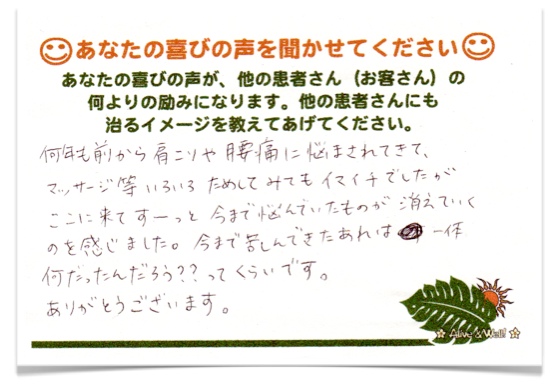 あなたの喜びの声を聞かせてください
あなたの喜びの声が、他の患者さん（お客さん）の
何よりの励みになります。他の患者さんにも
治るイメージを教えてあげてください。
何年も前から肩こりや腰痛に悩まされてきて、
マッサージ等いろいろためしてみてもイマイチでしたが
ここに来てすーっと今まで悩んでいたものが消えていく
のを感じました。今まで苦しんできたあれは一体
何だったんだろう??ってくらいです。
ありがとうございます。
☆ Alive & Well! ☆